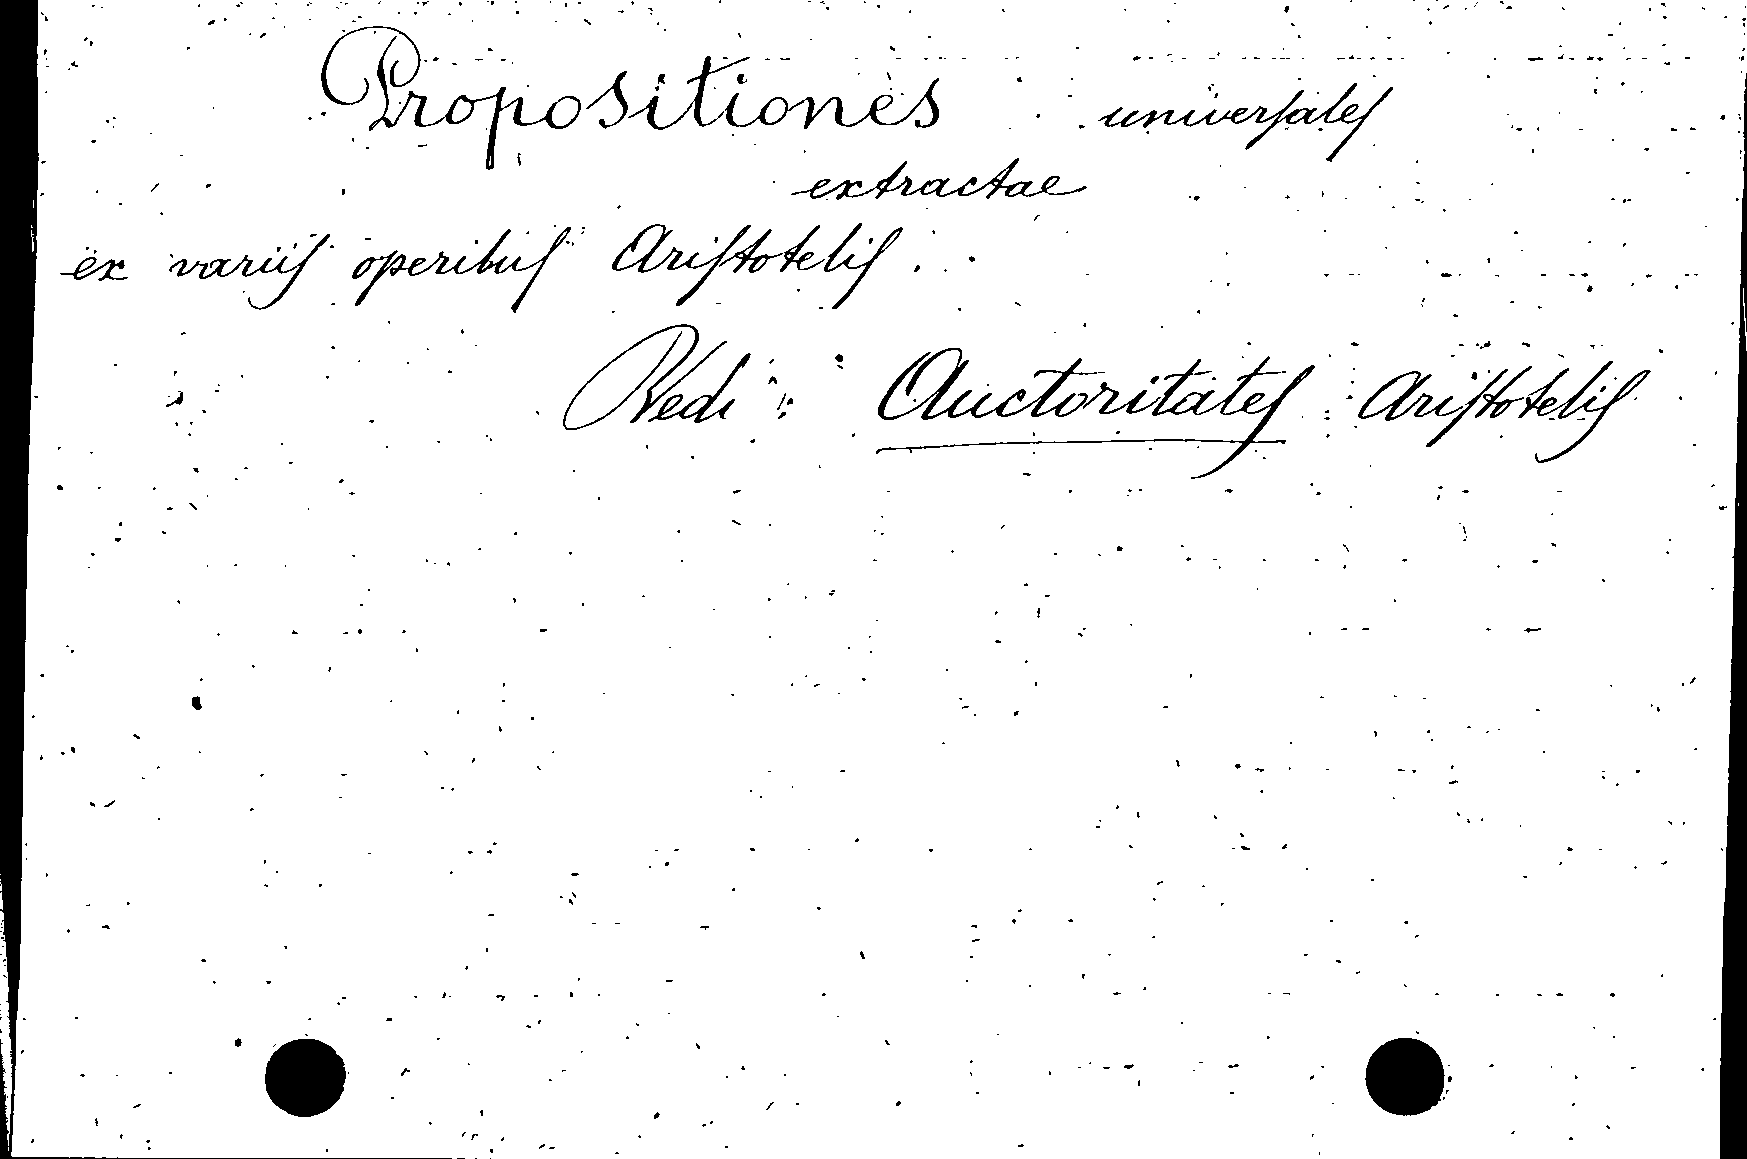 Propositiones universales
extractae
ex variis operibus Aristotelis.
Vedi: Auctoritates Aristotelis